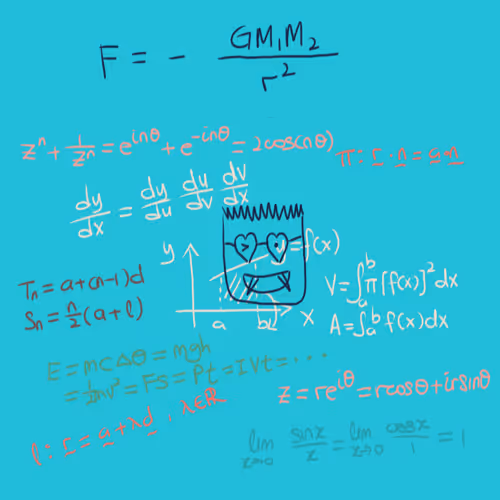 F = - GM₁M₂ / r²
zⁿ + 1/zⁿ = e^{inθ} + e^{-inθ} = 2cos(nθ)
π : r · n = a · n
dy/dx = dy/du du/dv dv/dx
y
y = f(x)
Tₙ = a + (n-1)d
Sₙ = n/2 (a + l)
a
b
x
V = ∫ₐᵇ π [f(x)]² dx
A = ∫ₐᵇ f(x) dx
E = mcΔθ = mgh
= ½mv² = Fs = Pt = IVt = ...
z = re^{iθ} = rcosθ + irsinθ
l : r = a + λd , λ∈ℝ
lim x→0 sinx/x = lim x→0 cosx/1 = 1